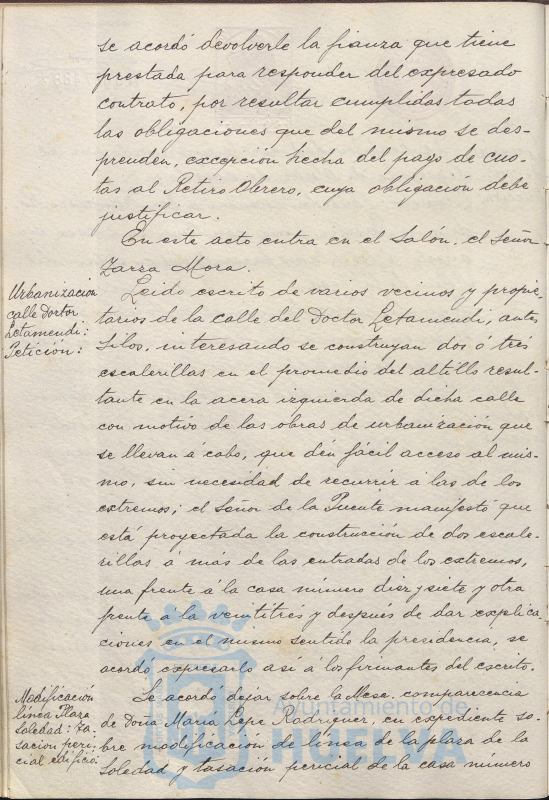 se acordó devolverle la fianza que tiene
prestada para responder del expresado
contrato, por resultar cumplidas todas
las obligaciones que del mismo se des-
prenden, excepción hecha del pago de cuo-
tas al Retiro Obrero, cuya obligación debe
justificar.
En este acto entra en el Salón, el Señor
Zarza Mora.
Urbanización
calle Doctor
Letamendi:
Petición:
Leido escrito de varios vecinos y propie-
tarios de la calle del Doctor Letamendi, antes
Silos, interesando se construyan dos ó tres
escalerillas en el promedio del altillo resul-
tante en la acera izquierda de dicha calle
con motivo de las obras de urbanización que
se llevan á cabo, que dén fácil acceso al mis-
mo, sin necesidad de recurrir á las de los
extremos; el Señor de la Puente manifestó que
está proyectada la construcción de dos escale-
rillas á más de las entradas de los extremos,
una frente á la casa número diez y siete y otra
frente á la veintitrés y después de dar explica-
ciones en el mismo sentido la presidencia, se
acordó expresarlo así á los firmantes del escrito.
Modificación
línea Plaza
Soledad: Ta-
sación peri-
cial edificio:
Se acordó dejar sobre la Mesa, comparecencia
de Doña María Pepe Rodríguez, en expediente so-
bre modificación de línea de la plaza de la
Soledad y tasación pericial de la casa número
Ayuntamiento de
HUELVA